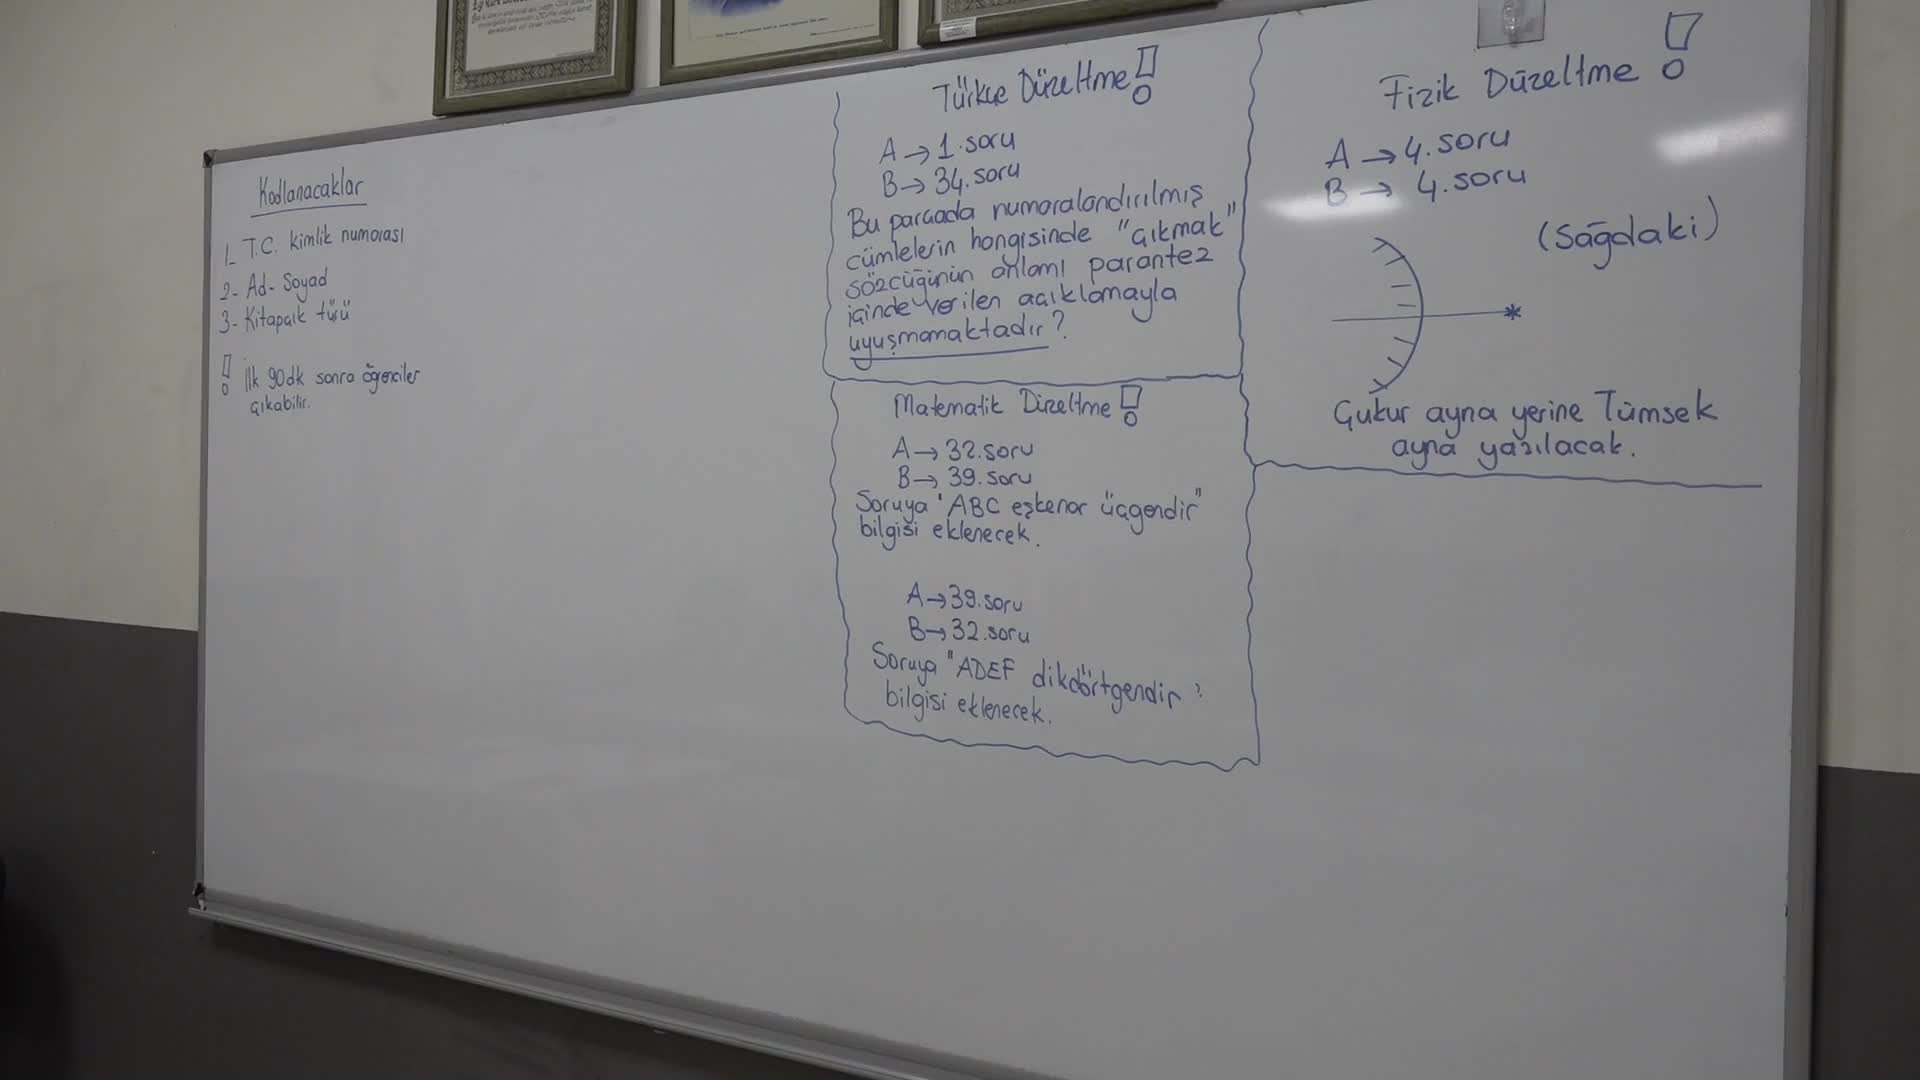 Kodlanacaklar
1- T.C. kimlik numarası
2- Ad- Soyad
3- Kitapçık türü
! İlk 90dk sonra öğrenciler
çıkabilir.
Türkçe Düzeltme!
A → 1. soru
B → 34. soru
Bu parçada numaralandırılmış
cümlelerin hangisinde "çıkmak"
sözcüğünün anlamı parantez
içinde verilen açıklamayla
uyuşmamaktadır?
Matematik Düzeltme!
A → 32. soru
B → 39. soru
Soruya "ABC eşkenar üçgendir"
bilgisi eklenecek.
A → 39. soru
B → 32. soru
Soruya "ADEF dikdörtgendir"
bilgisi eklenecek.
Fizik Düzeltme!
A → 4. soru
B → 4. soru
(Sağdaki)
Çukur ayna yerine Tümsek
ayna yazılacak.